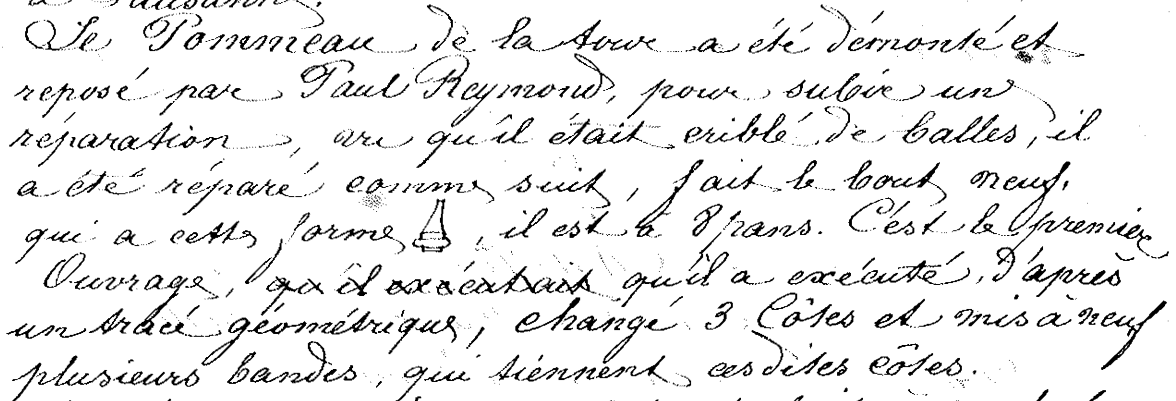 à Lausanne.
Le Pommeau de la tour a été démonté et
reposé par Paul Reymond, pour subir un
réparation, vu qu'il était criblé de balles, il
a été réparé comme suit, fait le bout neuf.
qui a cette forme , il est à 8 pans. C'est le premier
Ouvrage, qu'il exécutait qu'il a exécuté. D'après
un tracé géométrique, changé 3 Côtes et mis à neuf
plusieurs bandes, qui tiennent ces dites côtes.